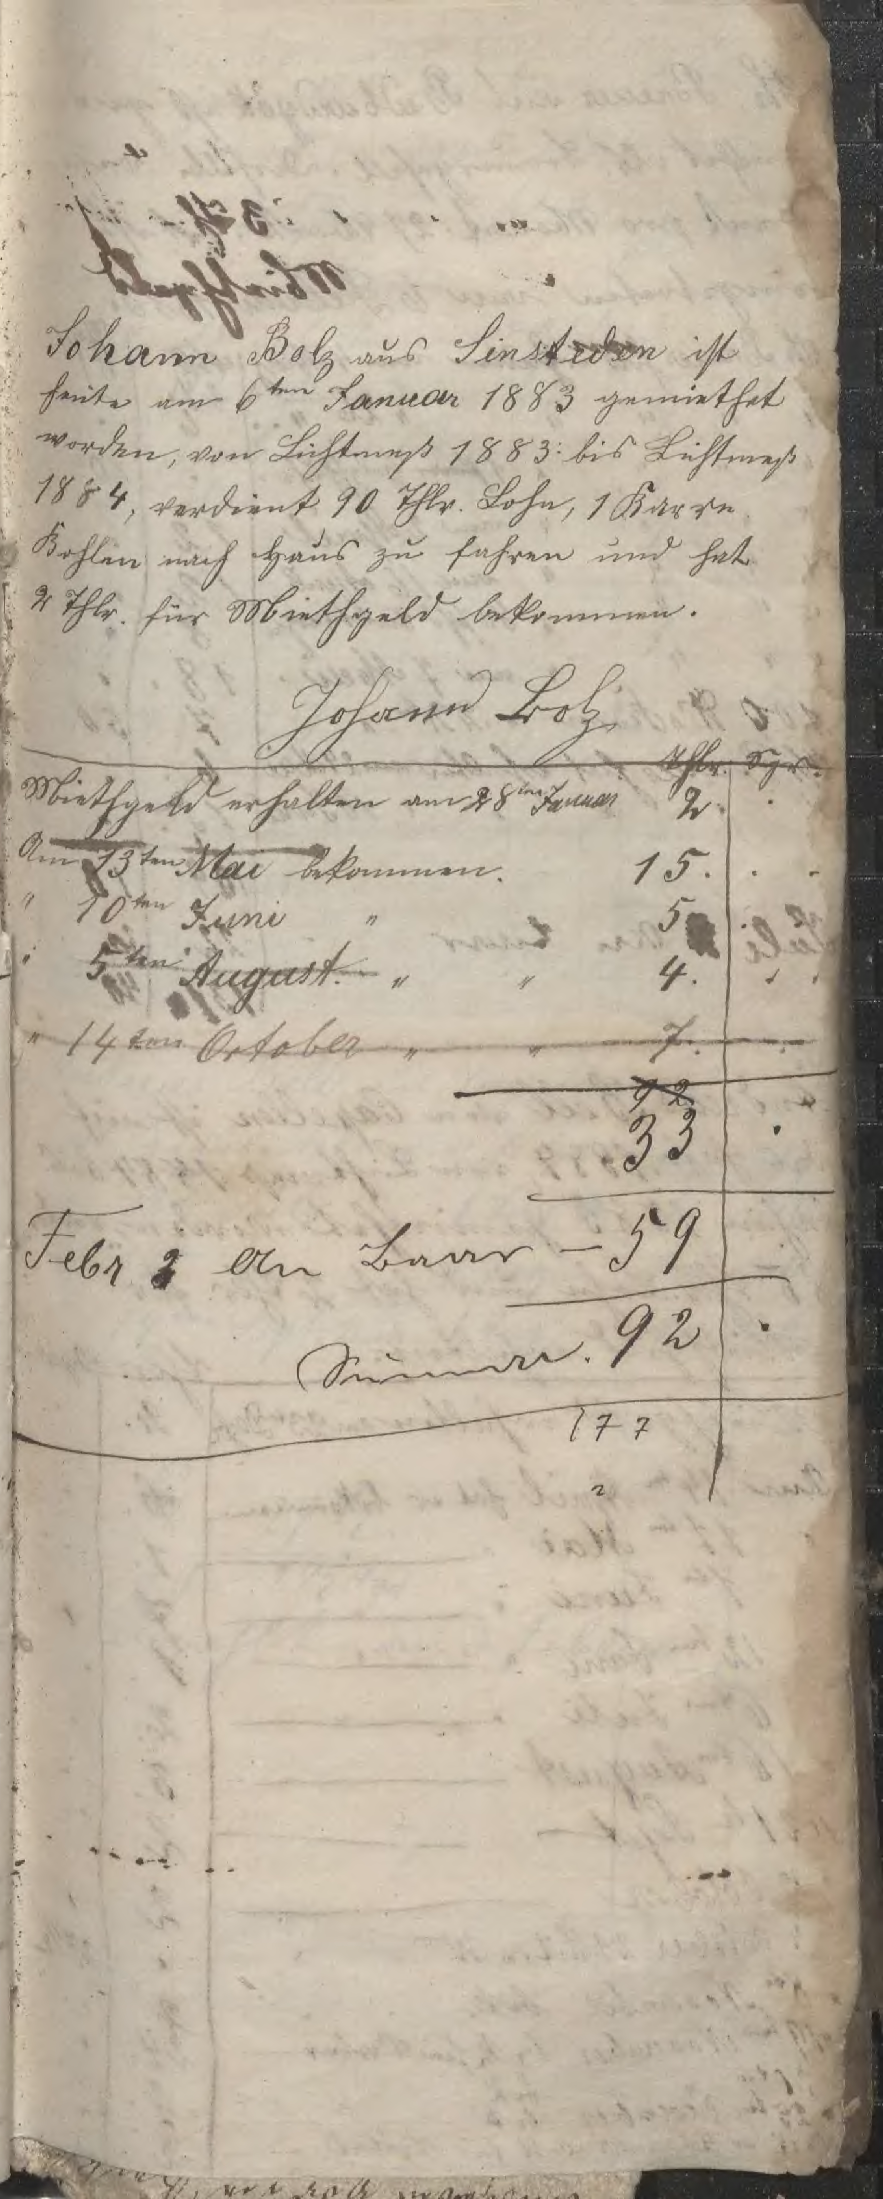 Johann Bolz aus Sinsteden ist
heute am 6ten Januar 1883 gemiethet
worden, von Lichtmeß 1883 bis Lichtmeß
1884, verdient 90 Thlr. Lohn, 1 Karre
Kohlen nach Haus zu fahren und hat
2 Thlr. für Miethgeld bekommen.
Johann Bolz
Thlr. Sgr.
Miethgeld erhalten am 28ten Januar 2. .
Am 13ten Mai bekommen. 15. . .
" 10ten Juni " 5 .
" 5ten August. " " 4. . .
" 14ten October " " 7. .
92
33 .
Febr 2 an Baar — 59
Summa. 92 .
177
2